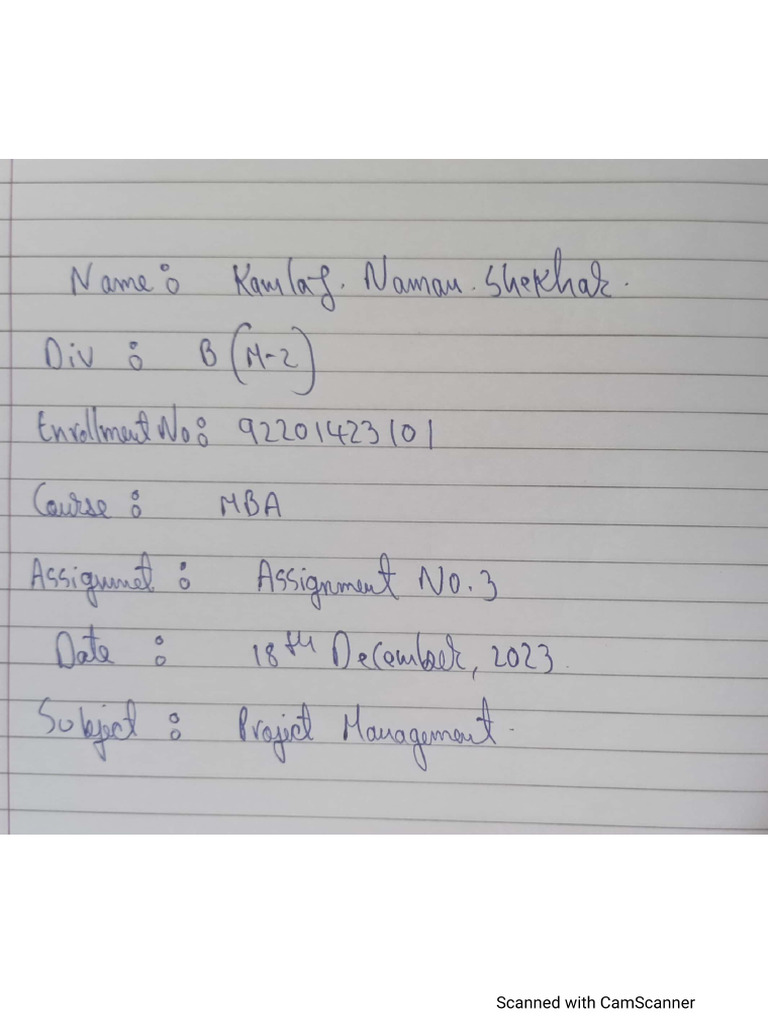 Name : Kamlaj. Naman. Shekhar.
Div : B (M-2)
Enrollment No : 92201423101
Course : MBA
Assignmet : Assignment No. 3
Date : 18th December, 2023.
Subject : Project Management.
Scanned with CamScanner